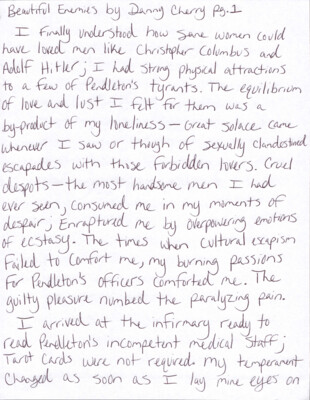 Beautiful Enemies by Danny Cherry pg.1
I finally understood how some women could
have loved men like Christopher Columbus and
Adolf Hitler; I had strong physical attractions
to a few of Pendleton's tyrants. The equilibrium
of love and lust I felt for them was a
by-product of my loneliness — Great solace came
whenever I saw or thougt of sexually clandestined
escapades with those forbidden lovers. Cruel
despots — the most handsome men I had
ever seen, consumed me in my moments of
despair; Enraptured me by overpowering emotions
of ecstasy. The times when cultural escapism
failed to comfort me, my burning passions
for Pendleton's officers comforted me. The
guilty pleasure numbed the paralyzing pain.
I arrived at the infirmary ready to
read Pendleton's incompetent medical staff;
Tarot Cards were not requred. My temperament
changed as soon as I lay mine eyes on